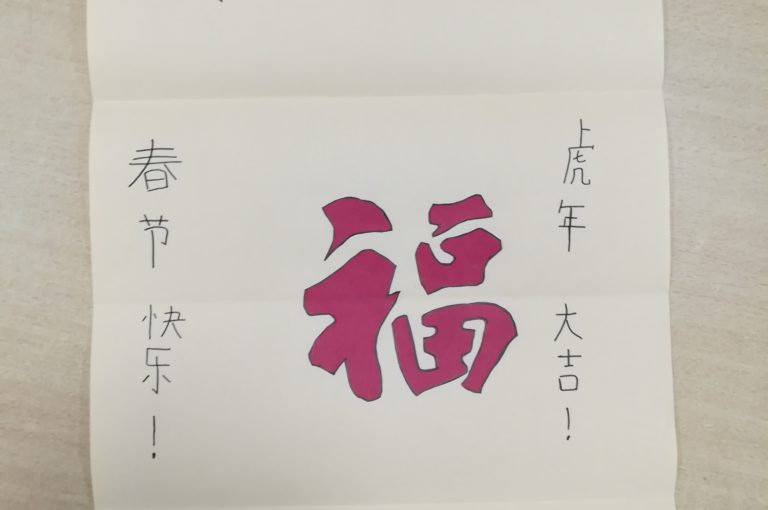 春节快乐！
福
虎年大吉！